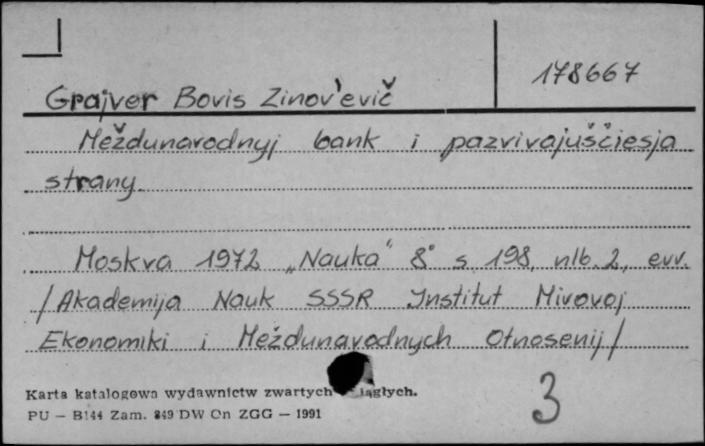 178667
Grajver Boris Zinov'evič
Meždunarodnyj bank i pazvivajuščiesja
strany
Moskva 1972 „Nauka" 8° s. 198, nlb. 2, err.
/Akademija Nauk SSSR Institut Mirovoj
Ekonomiki i Meždunarodnych Otnosenij/
Karta katalogowa wydawnictw zwartych iągłych.
PU — B144 Zam. 849 DW Cn ZGG — 1991
3